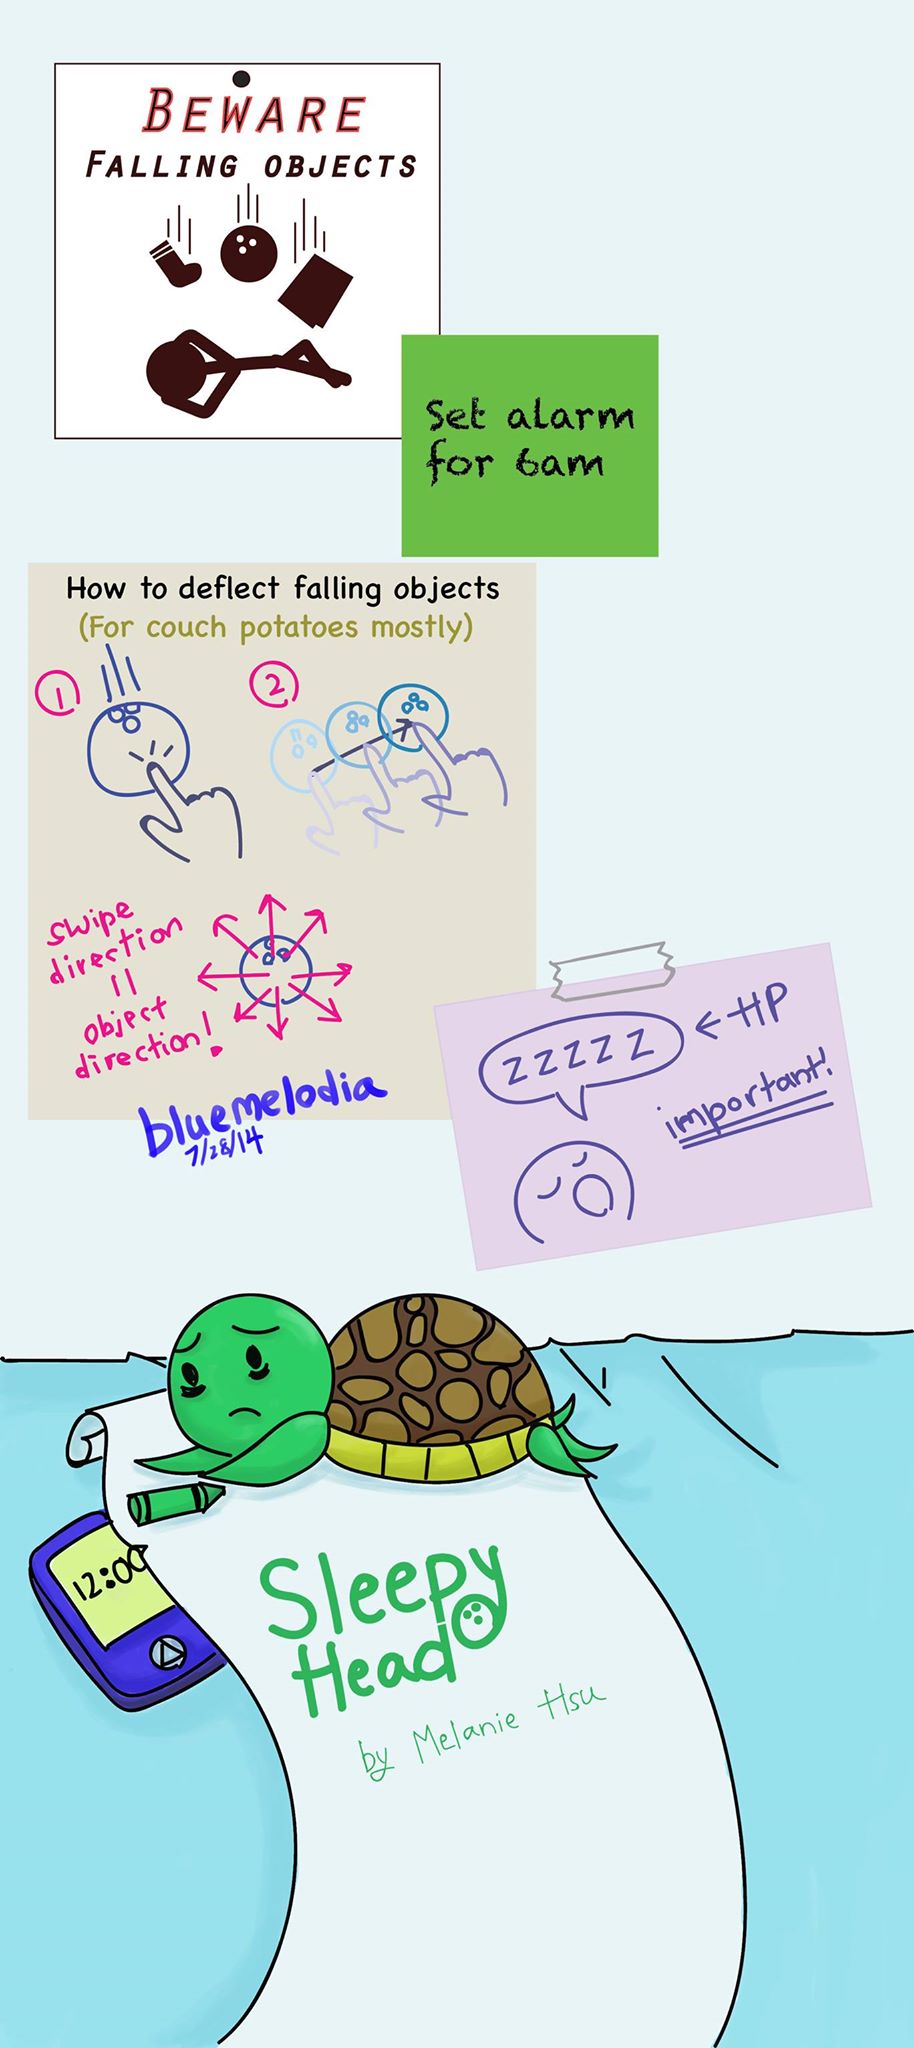 BEWARE
FALLING OBJECTS
Set alarm
for 6am
How to deflect falling objects
(For couch potatoes mostly)
1
2
swipe
direction
||
object
direction!
bluemelodia
7/28/14
ZZZZZ
←HP
important!
12:00
Sleepy
Head
by Melanie Hsu